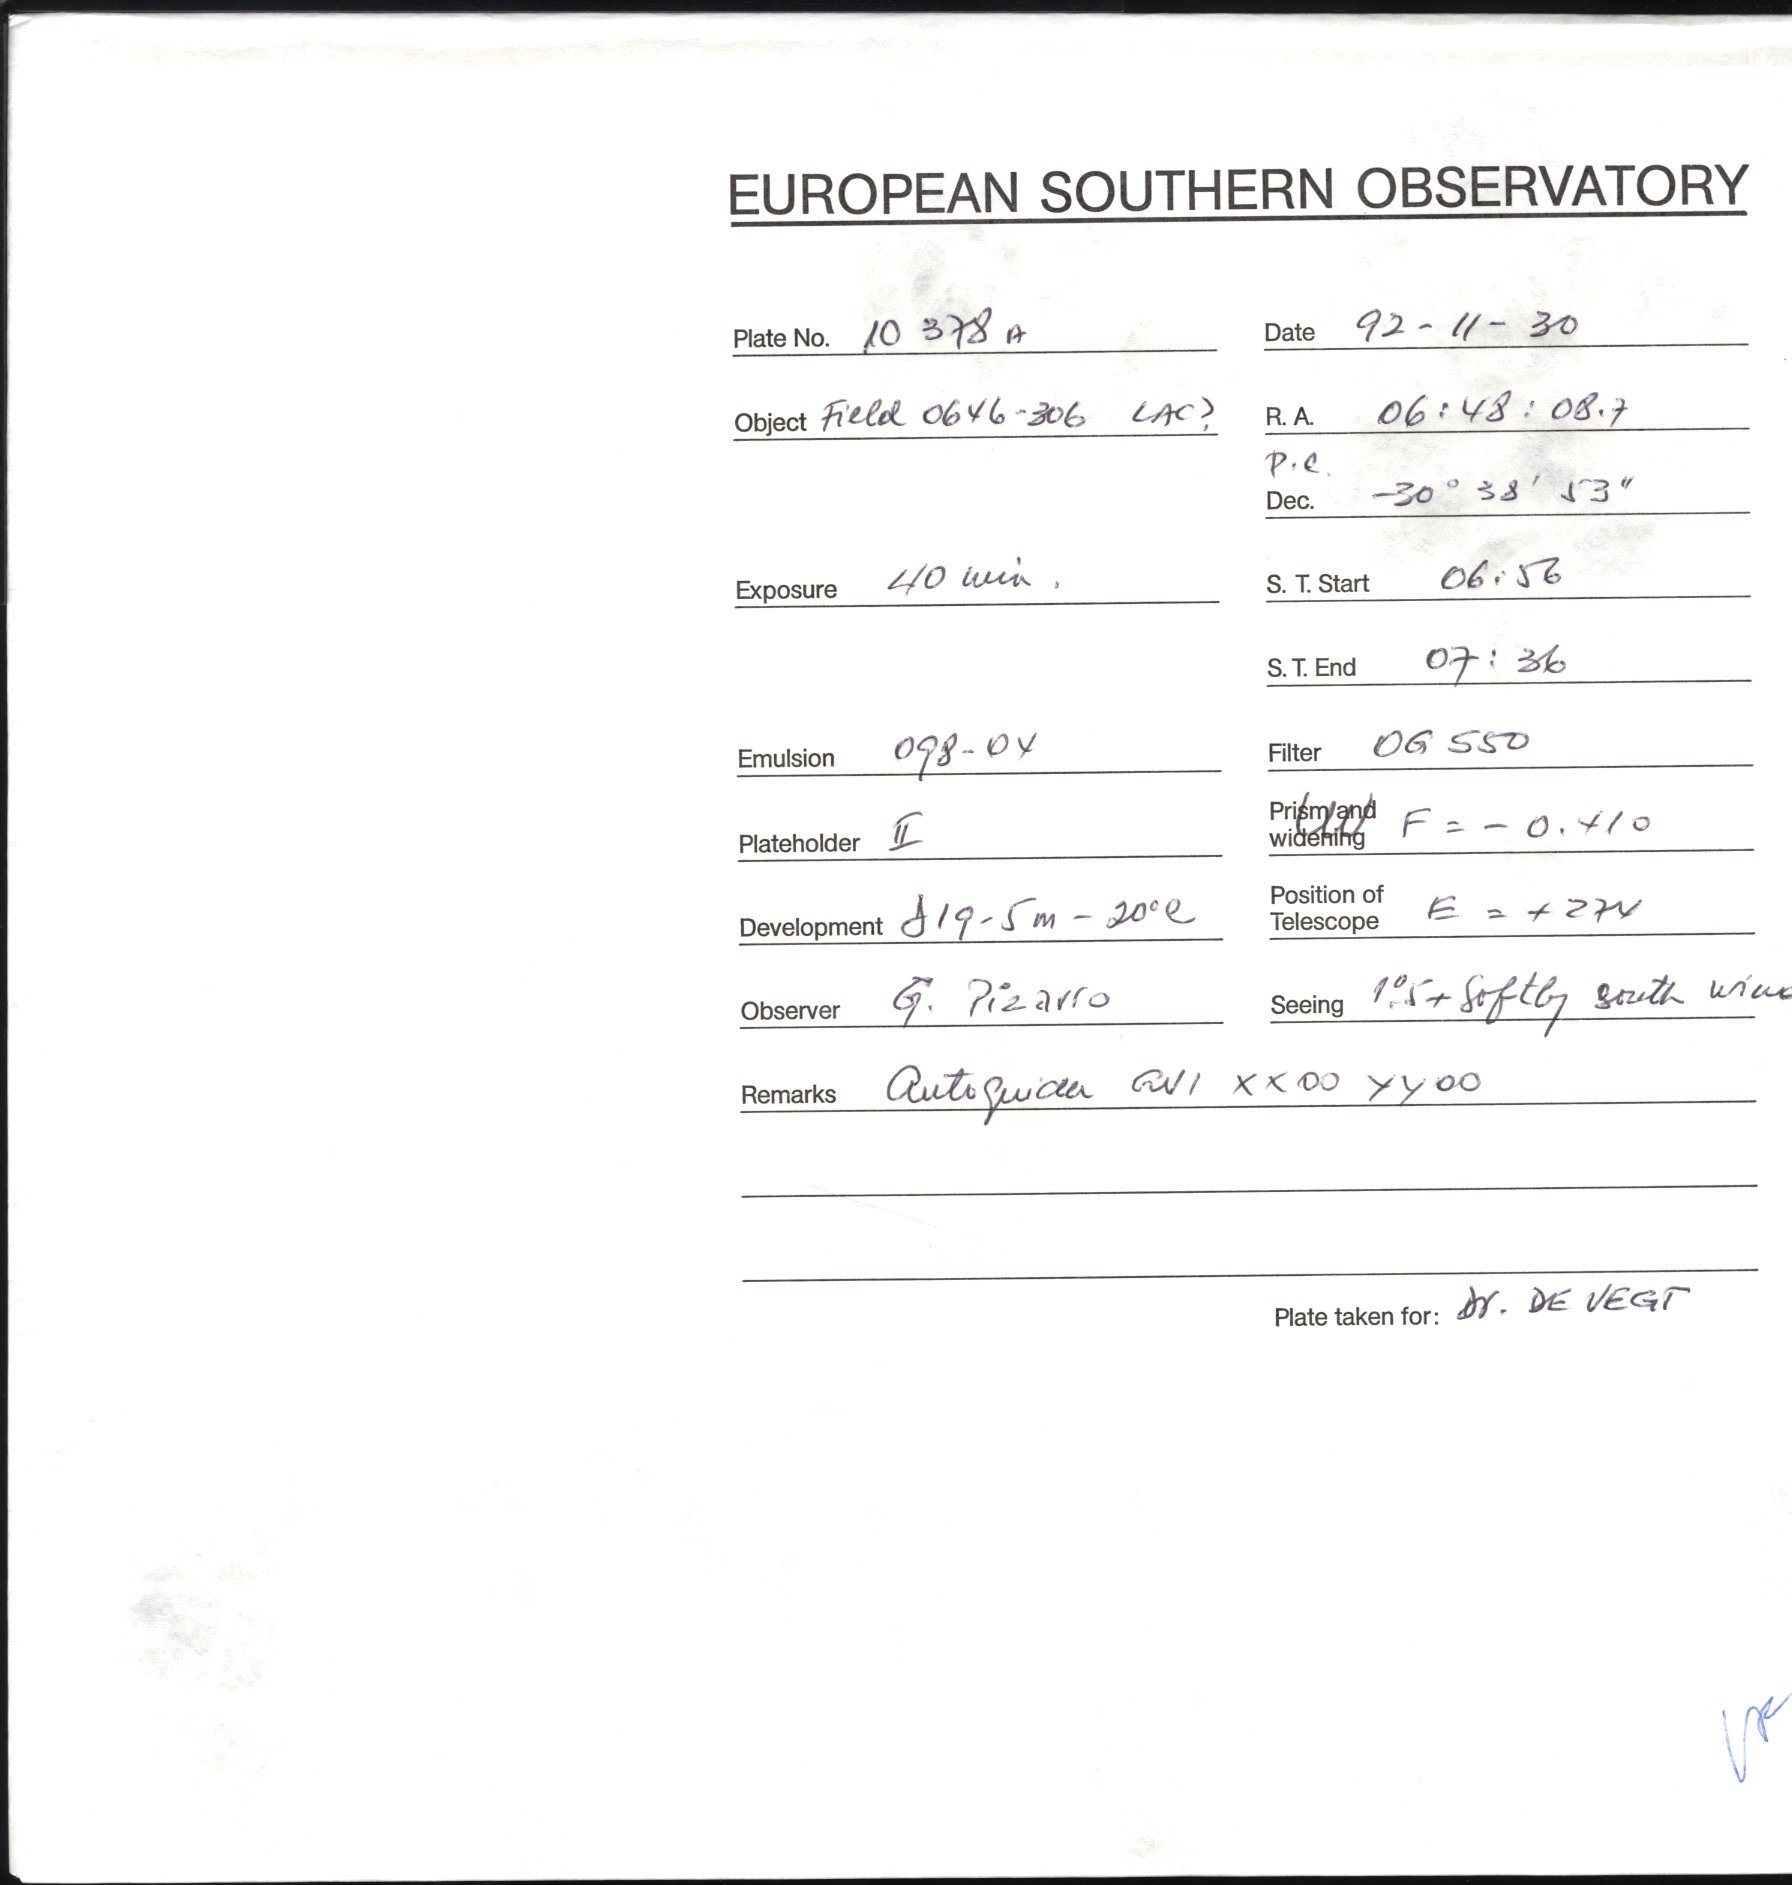 EUROPEAN SOUTHERN OBSERVATORY
Plate No. 10 378 A Date 92-11-30
Object Field 0646-306 LAC? R. A. 06:48:08.7
P.C.
Dec. -30° 38' 53"
Exposure 40 min. S. T. Start 06:56
S. T. End 07:36
Emulsion 098-04 Filter OG 550
Plateholder II Prism and widening F = - 0.410
Development D19-5m-20°C Position of Telescope E = +274
Observer G. Pizarro Seeing 1".5+ Softly south wind
Remarks Autoguider GV1 XX00 YY00
Plate taken for: Dr. DE VEGT